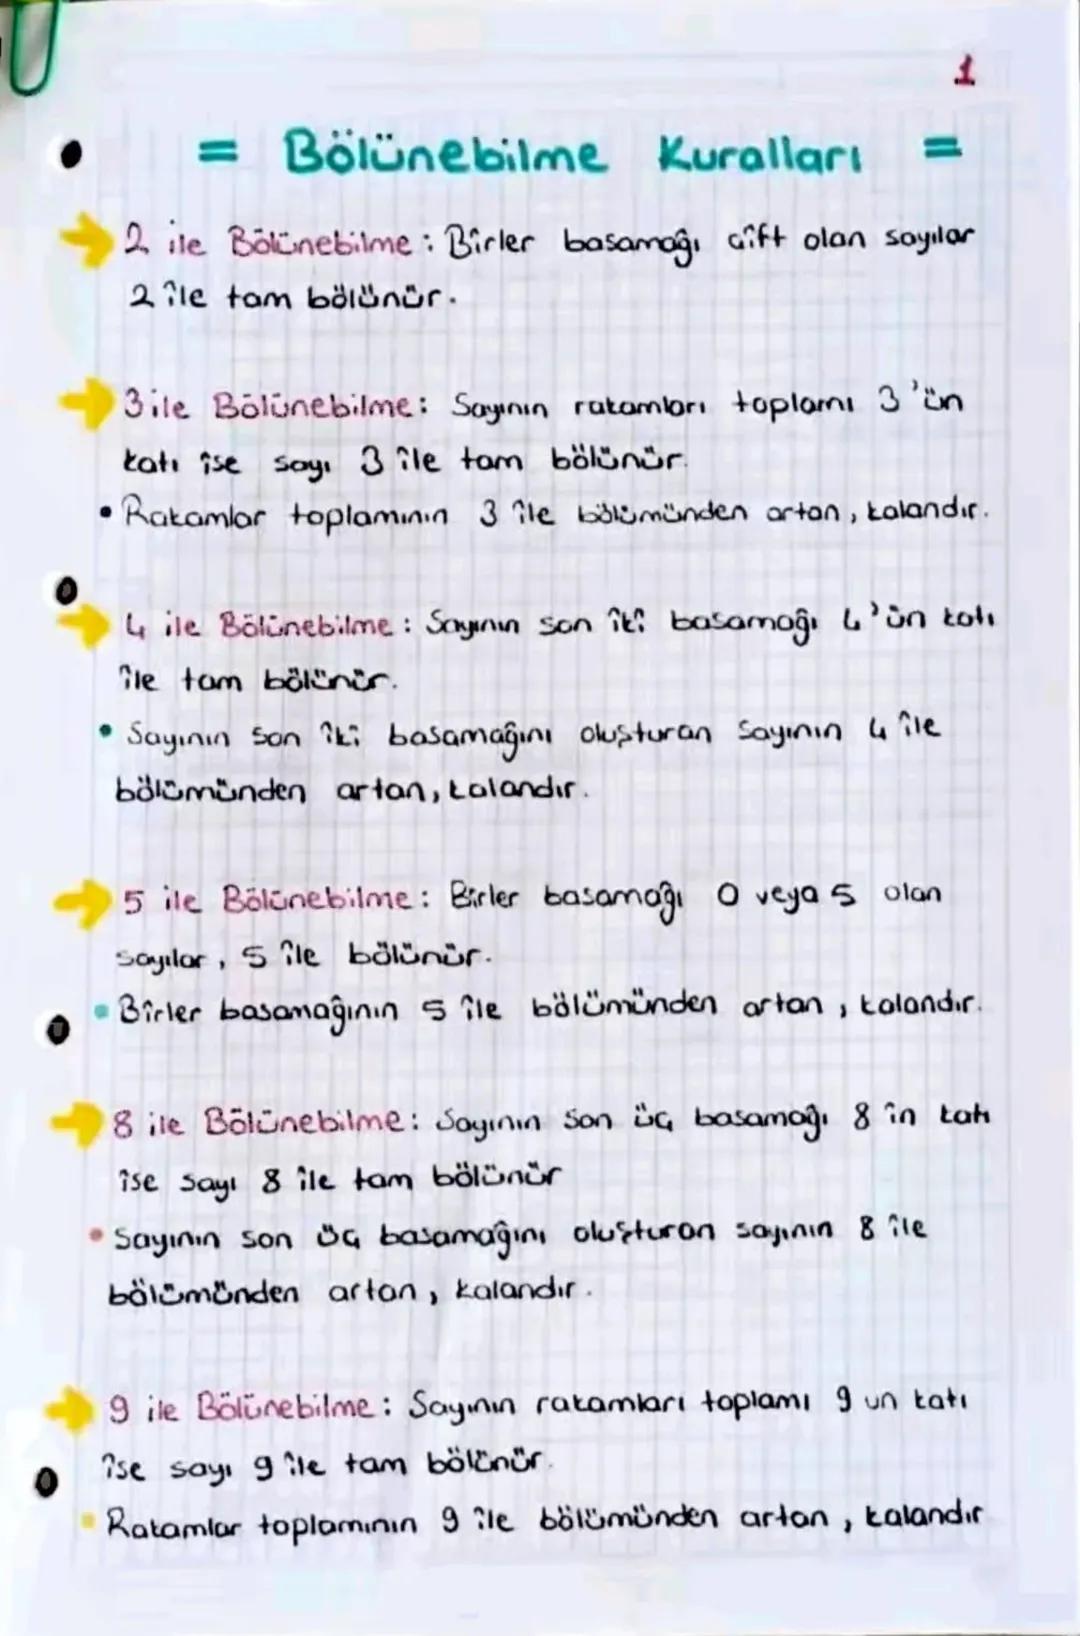 1
= Bölünebilme Kuralları =
2 ile Bölünebilme : Birler basamağı çift olan sayılar
2 ile tam bölünür.
3 ile Bölünebilme : Sayının rakamları toplamı 3'ün
katı ise sayı 3 ile tam bölünür.
• Rakamlar toplamının 3 ile bölümünden artan, kalandır.
4 ile Bölünebilme : Sayının son iki basamağı 4'ün katı
ile tam bölünür.
• Sayının son iki basamağını oluşturan sayının 4 ile
bölümünden artan, kalandır.
5 ile Bölünebilme : Birler basamağı 0 veya 5 olan
sayılar, 5 ile bölünür.
• Birler basamağının 5 ile bölümünden artan, kalandır.
8 ile Bölünebilme : Sayının son üç basamağı 8 in katı
ise sayı 8 ile tam bölünür
• Sayının son üç basamağını oluşturan sayının 8 ile
bölümünden artan, kalandır.
9 ile Bölünebilme : Sayının rakamları toplamı 9 un katı
ise sayı 9 ile tam bölünür.
• Rakamlar toplamının 9 ile bölümünden artan, kalandır